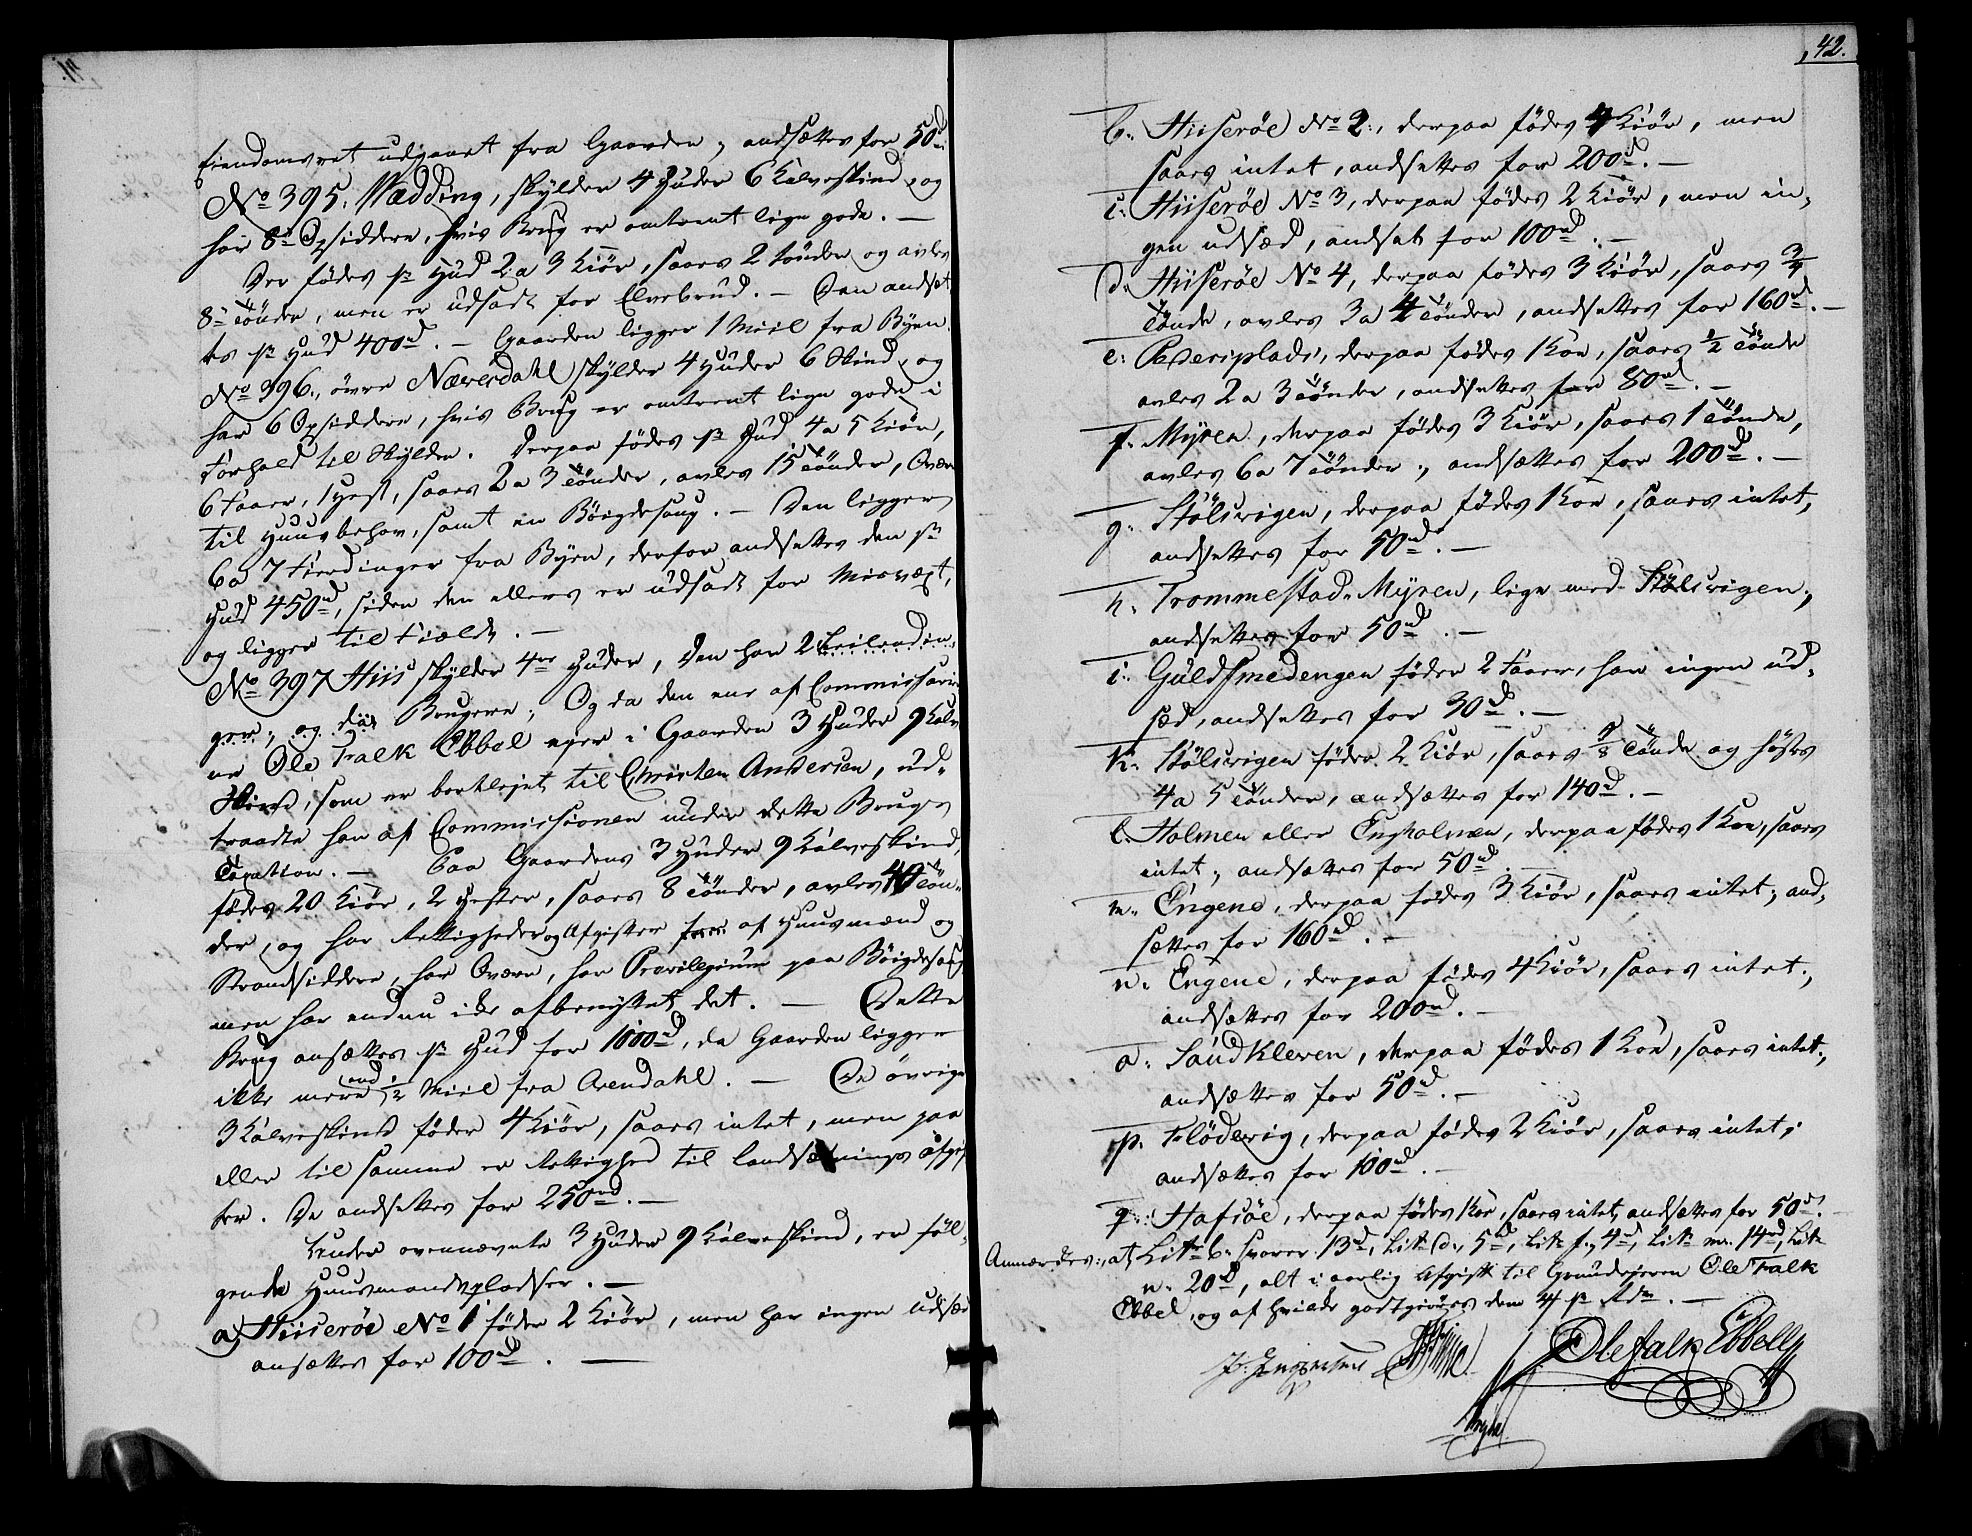 Eiendomsret udgaaet fra Gaarden, andsættes for 50rd
No 395. Nædding, skylder 4 Huder 6 Kalveskind, og
har 8te Opsiddere, hvis Brug er omtrent lige gode. —
Der fødes pr Hud 2 a 3 Kiör, saaes 2 Tönder og avles
8te Tönder, men er udsadt for Elvebrud. — Den andsæt-
tes pr Hud 400rd. — Gaarden ligger 1 Miil fra Byen.
No 396., övre Næversdahl skylder 4 Huder 6 Skind, og
har 6 Opsiddere, hvis Brug er omtrent lige gode i
Forhold til Skylden. Derpaa fødes pr Hud 4 a 5 Kiör,
6 Faaer, 1 Hest, saaes 2 a 3 Tönder, avles 15 Tönder, Qværn
til Huusbehov, samt en Böigdesaug. — Den ligger
6 a 7 Fierdinger fra Byen, derfor andsettes den pr
Hud 450rd, siden den ellers er udsadt for Misvæxt,
og ligger til Fields. —
No 397 Hiis skylder 4re Huder, den har 2 Leilændin-
ger, og disse Brugere; Og da den ene af Commissairer-
ne Ole Falk Ebbel eyer i Gaarden 3 Huder 9 Kalv-
Skind, som er bortleyet til Christen Andersen, ud-
traadte han af Commissionen under dette Brugs
Taxation. — Paa Gaardens 3 Huder 9 Kalveskind,
fødes 20 Kiör, 2 Hester, saaes 8 Tönder, avles 40 Tön-
der, og har Rettigheder og Afgifter af Huusmænd og
Strandsiddere, har Qværn, har Previlegium paa Böigdesaug
men har endnu ikke afbenyttet det. — Dette
Brug ansættes pr Hud for 1000rd, da Gaarden ligger
ikke mere end ½ Miil fra Arendahl. — De övrige
3 Kalveskind føder 4 Kiör, saaes intet, men paa
eller til samme er Rettighed til Landsætnings Afgif-
ter. De andsettes for 250rd. —
Under ovennævnte 3 Huder 9 Kalveskind, er föl-
gende Huusmandspladser. —
a, Hiiseröe No 1 föder 2 Kiör, men har ingen Udsæd
ansættes for 100rd. —
42.
b. Hiiseröe No 2., derpaa födes 4 Kiör, men
saaes intet, andsettes for 200rd. —
c. Hiiseröe No 3, derpaa födes 2 Kiör, men in-
gen udsæd, andsat for 100rd. —
d. Hiiseröe No 4, derpaa födes 3 Kiör, saaes 3/4
Tönde, avles 3 a 4 Tönder, andsettes for 160rd. —
e. derpaa födes 1 Koe, saaes ½ Tönde
avles 2 a 3 Tönder, andsettes for 80rd. —
f. Myren, derpaa födes 3 Kiör, saaes 1 Tönde,
avles 6 a 7 Tönder, andsættes for 200rd. —
g. Stölsvigen, derpaa födes 1 Koe, saaes intet,
andsettes for 50rd. —
h. Trommestad-Myren, lige med Stölsvigen,
andsettes for 50rd. —
i. Guldsmedengen föder 2 Faarer, har ingen ud-
sæd, andsettes for 30rd. —
k. Stölsvigen föder 2 Kiör, saaes Tönde og høstes
4 a 5 Tönder, andsættes for 140rd. —
l. Holmen eller Engholmen, derpaa födes 1 Koe, saaes
intet, andsættes for 50rd. —
m. Engene, derpaa födes 3 Kiör, saaes intet, and-
sættes for 160rd. —
n. Engene, derpaa födes 4 Kiör, saaes intet,
andsættes for 200rd. —
o. Sandkleven, derpaa födes 1 Koe, saaes intet,
andsættes for 50rd. —
p. Flödevig, derpaa födes 2 Kiör, saaes intet,
andsættes for 100rd. —
q. Hafsöe, derpaa födes 1 Koe, saaes intet, andsættes for 50rd. —
Anmærkes, at Litr b. svarer 13rd, Litr d., 5rd, Litr f., 4rd, Litr m. 14rd, Litr
n. 20rd, alt i aarlig Afgift til Grundejeren Ole Falk
Ebbel, og af hvilke godtgiöres dem 4 pr
Ole Falk Ebbell